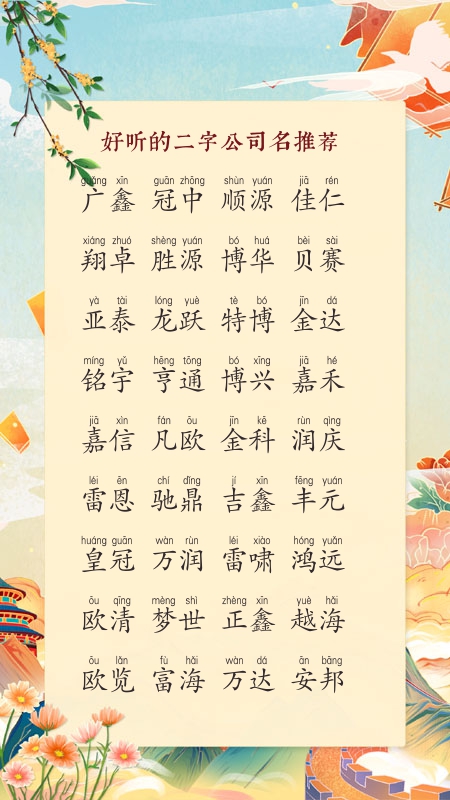 好听的二字公司名推荐
guǎng xīn guān zhōng shùn yuán jiā rén
广鑫 冠中 顺源 佳仁
xiáng zhuó shèng yuán bó huá bèi sài
翔卓 胜源 博华 贝赛
yà tài lóng yuè tè bó jīn dá
亚泰 龙跃 特博 金达
míng yǔ hēng tōng bó xīng jiā hé
铭宇 亨通 博兴 嘉禾
jiā xìn fán ōu jīn kē rùn qìng
嘉信 凡欧 金科 润庆
léi ēn chí dǐng jí xīn fēng yuán
雷恩 驰鼎 吉鑫 丰元
huáng guān wàn rùn léi xiào hóng yuǎn
皇冠 万润 雷啸 鸿远
ōu qīng mèng shì zhèng xīn yuè hǎi
欧清 梦世 正鑫 越海
ōu lǎn fù hǎi wàn dá ān bāng
欧览 富海 万达 安邦